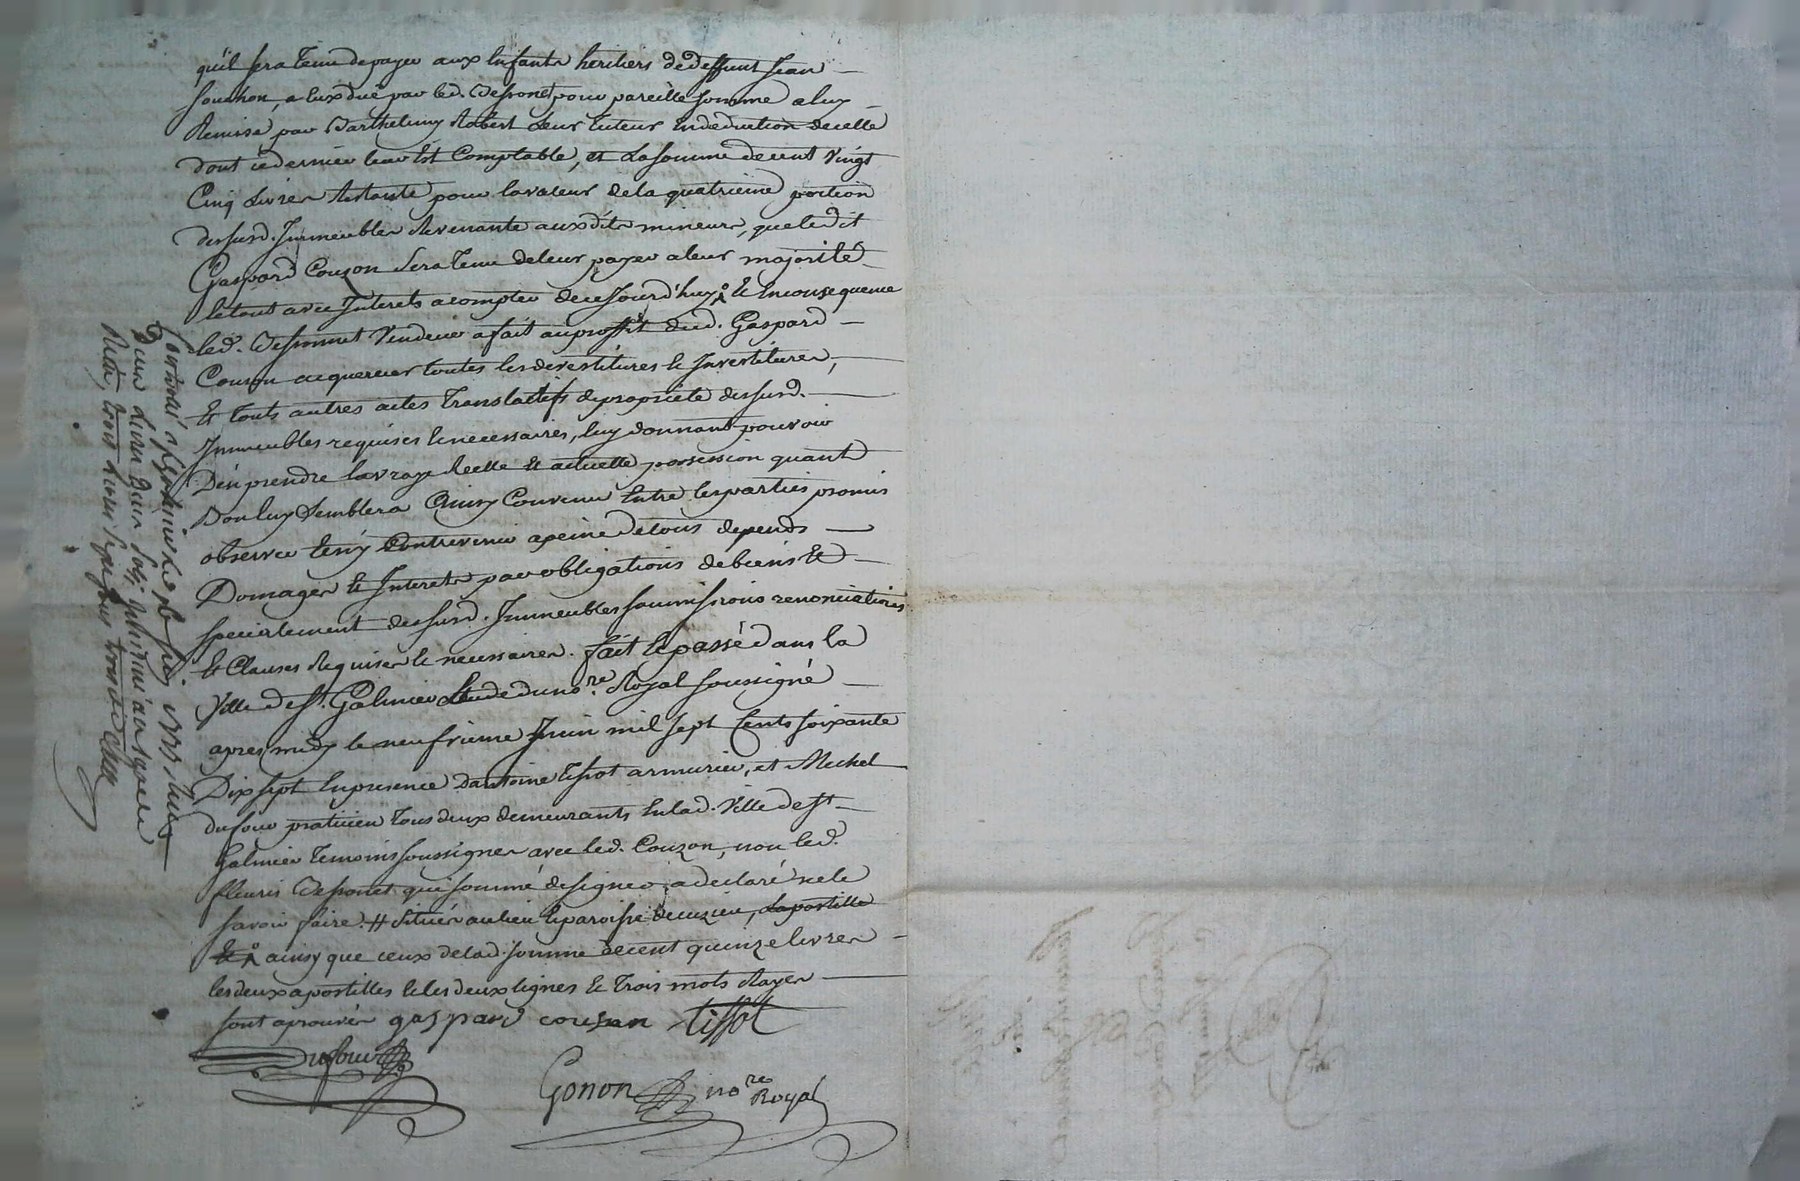 qu'il sera Tenu de payer aux Enfants heritiers de deffunt Jean
Souchon, a Eux due par led. Desponet pour pareille somme a luy
Remise par Barthelemy Robert Leur Tuteur En deduction de celle
dont ce dernier leur Est Comptable, et La somme de cent Vingt
Cinq Livres Restante pour la valeur de la quatrieme portion
desusd. Immeubles Revenante auxdits mineurs, que le dit
Gaspard Couzon Sera Tenu de leur payer a leur majorité
le tout avec Interets a compter de ce Jourd'huy & En consequence
led. Desponnet Vendeur a fait au proffit dud. Gaspard
Couzon acquereur toutes les devestitures & Investitures,
Et touts autres actes Translatifs de propriete desusd.
Immeubles requises & necessaires, luy donnant pouvoir
D'en prendre la vraye Reelle & actuelle possession quant
Bon luy Semblera Ainsy Convenu Entre les parties promis
observer & n'y Contrevenir a peine de tous depends
Domages & Interets par obligations de biens &
specialement desusd. Immeubles soumissions renonciations
& Clauses Requises & necessaires. fait & passé dans la
Ville de St. Galmier Etude du nore. Royal soussigné
apres midy le neufvieme Juin mil sept Cents soixante
Dix sept En presence D'antoine Tissot armurier, et Michel
dufour praticien Tous deux demeurants En lad. Ville de St
Galmier Temoins soussignes avec led. Couzon, non led.
fleuris Desponet qui sommé de signer, a declaré ne le
savoir faire. # situés au lieu & paroisse de cuzieu, La postille
& ainsy que ceux de lad. somme de cent quinze livres
les deux apostilles & les deux lignes & Trois mots Rayes
sont aprouvés gaspard couson tissot
Dufour
Gonon nore Royal
Controlé a St Galmier le
Recu trois livres